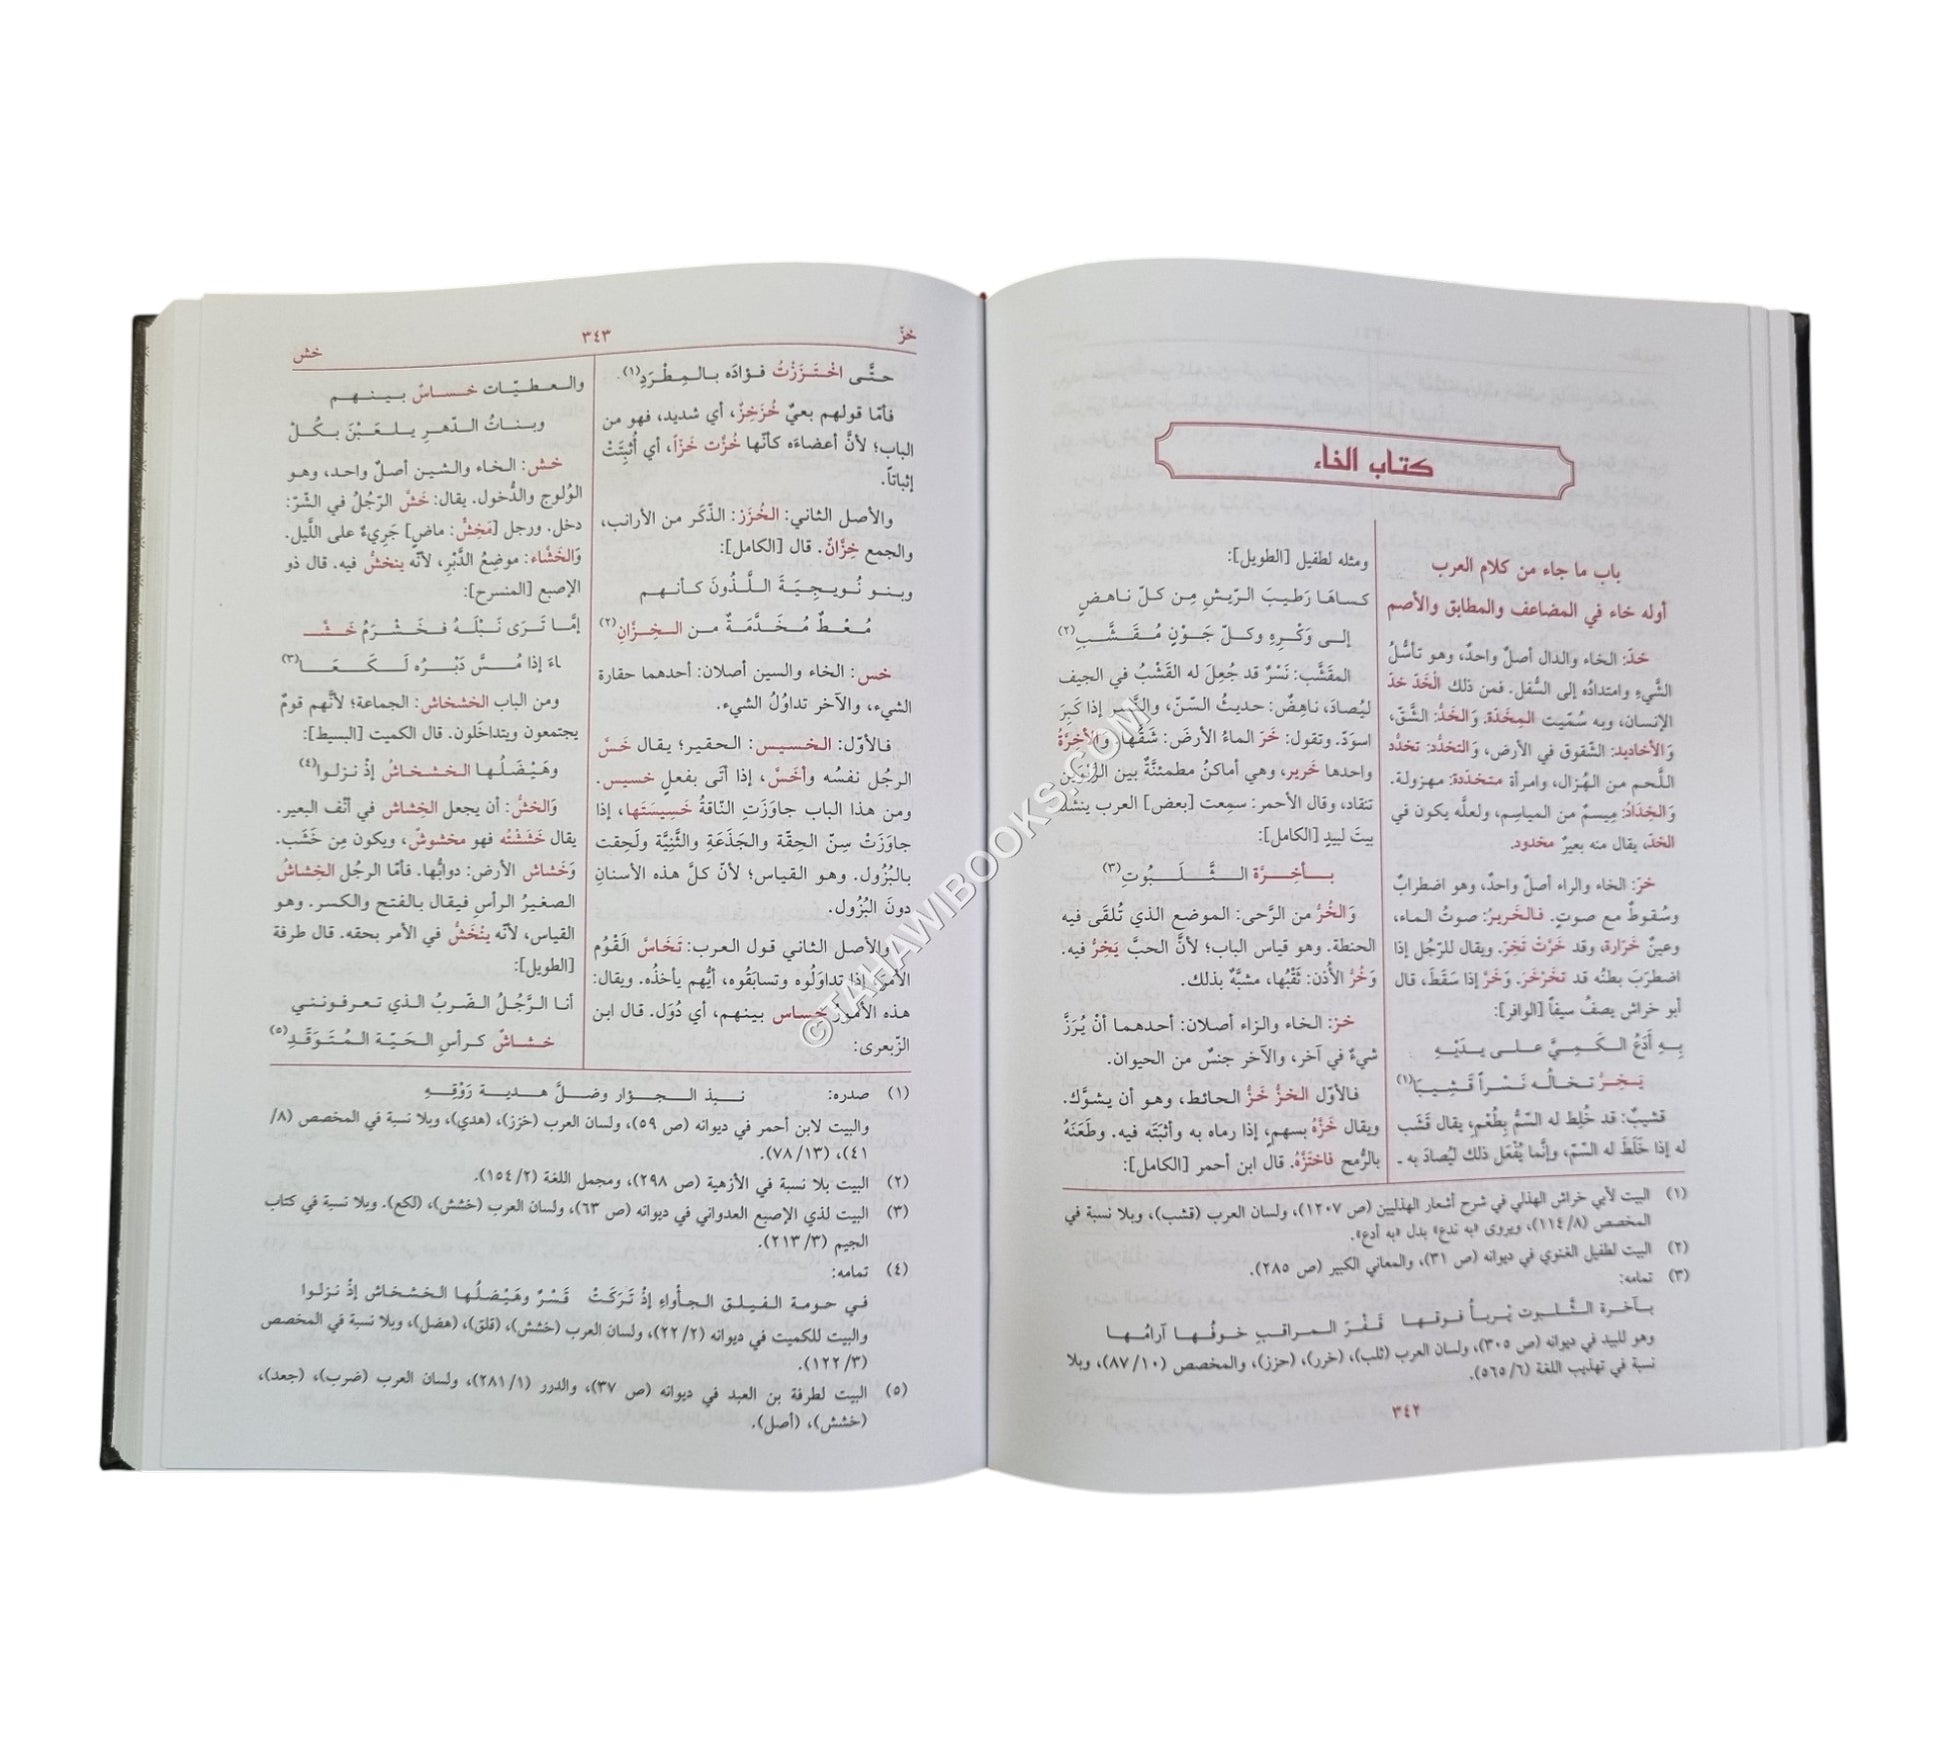 كتاب الخاء
باب ما جاء من كلام العرب
أوله خاء في المضاعف والمطابق والأصم
خدّ: الخاء والدال أصلٌ واحدٌ، وهو تأسُّلُ
الشَّيءِ وامتدادُه إلى السُّفل. فمن ذلك الْخَدّ خدّ
الإنسان، وبه سُمّيت المِخَدّة. وَالخَدُّ: الشَّقّ،
وَالأخاديد: الشُّقوق في الأرض، وَالتخدُّد: تخدُّد
اللَّحم من الهُزال، وامرأة متخدّدة: مهزولة.
وَالخِدَادُ: مِيسمٌ من المياسِم، ولعلَّه يكون في
الخدّ، يقال منه بعيرٌ مخدود.
خرّ: الخاء والراء أصلٌ واحدٌ، وهو اضطرابٌ
وسُقوطٌ مع صوتٍ. فـالخَريرُ: صوتُ الماء،
وعينٌ خَرّارة، وقد خَرَّتْ تَخِرّ. ويقال للرّجل إذا
اضطرَبَ بطنُه قد تخَرْخَرَ. وَخَرَّ إذا سَقَطَ، قال
أبو خراش يصفُ سيفاً [الوافر]:
بِهِ أَدَعُ الكَمِيَّ على يدَيْهِ
يَخِرُّ تخالُه نَسْراً قَشِيبَا(١)
قشيبٌ: قد خُلِط له السّمُّ بِطُعْمٍ، يقال قَشَب
له إذا خَلَطَ له السّمّ، وإنَّما يُفْعَل ذلك ليُصادَ به ـ
ومثله لطفيل [الطويل]:
كساهَا رَطيبَ الرّيشِ مِن كلّ ناهضٍ
إلى وَكْرِهِ وكلّ جَوْنٍ مُقَشَّبِ(٢)
المقَشَّب: نَسْرٌ قد جُعِلَ له القَشْبُ في الجيف
ليُصادَ، ناهِضٌ: حديثُ السّنّ، والنَّسر إذا كَبِرَ
اسوَدّ. وتقول: خَرّ الماءُ الأرضَ: شَقَّها. وَالأخِرَّةُ
واحدها خَرير، وهي أماكنُ مطمئنَّةٌ بين الرَّبْوَين
تنقاد، وقال الأحمر: سمِعت [بعض] العرب ينشد
بيتَ لبيدٍ [الكامل]:
بـأخِرَّة الثَّلَبُوتِ(٣)
وَالخُرُّ من الرَّحى: الموضع الذي تُلقَى فيه
الحنطة. وهو قياس الباب؛ لأنَّ الحبَّ يَخِرُّ فيه.
وَخُرُّ الأُذن: ثَقْبُها، مشبَّهٌ بذلك.
خز: الخاء والزاء أصلان: أحدهما أنْ يُرَزَّ
شيءٌ في آخر، والآخر جنسٌ من الحيوان.
فالأوّل الخزُّ خَزُّ الحائط، وهو أن يشوَّك.
ويقال خَزَّهُ بسهمٍ، إذا رماه به وأثبَتَه فيه. وطَعَنَهُ
بالرُّمح فاختَزَّهُ. قال ابن أحمر [الكامل]:
(١) البيت لأبي خراش الهذلي في شرح أشعار الهذليين (ص ١٢٠٧)، ولسان العرب (قشب)، وبلا نسبة في
المخصص (٨/ ١١٤)، ويروى «به ندع» بدل «به أدع».
(٢) البيت لطفيل الغنوي في ديوانه (ص ٣١)، والمعاني الكبير (ص ٢٨٥).
(٣) تمامه:
بـأخرة الثَّلبوت يَربأُ فوقها قَفْرَ المراقبِ خوفُها آرامُها
وهو للبيد في ديوانه (ص ٣٠٥)، ولسان العرب (ثلب)، (خرر)، (حزز)، والمخصص (١٠/ ٨٧)، وبلا
نسبة في تهذيب اللغة (٦/ ٥٦٥).
٣٤٢
خزّ ٣٤٣ خش
حتَّى اخْتَزَزْتُ فؤادَه بالمِطْرَدِ(١).
فأمّا قولهم بعيٌ خُزَخِزٌ، أي شديد، فهو من
الباب؛ لأنَّ أعضاءَه كأنّها خُزَّت خَزّاً، أي أُثبِتَتْ
إثباتاً.
والأصل الثاني: الخُزَز: الذّكَر من الأرانب،
والجمع خِزَّانٌ. قال [الكامل]:
وبنو نُويجِيَةَ اللَّذُونَ كأنهم
مُعْطٌ مُخَدَّمَةٌ من الخِزَّانِ(٢)
خس: الخاء والسين أصلان: أحدهما حقارة
الشيء، والآخر تداوُلُ الشيء.
فالأوّل: الخسيس: الحقير؛ يقال خَسَّ
الرجُل نفسُه وأخَسَّ، إذا أتى بفعلٍ خسيس.
ومن هذا الباب جاوَزَتِ النّاقةُ خَسِيسَتَها، إذا
جاوَزَتْ سِنّ الحِقّة والجَذَعَةِ والثَّنِيَّة ولَحِقت
بالبُزُول. وهو القياس؛ لأنّ كلَّ هذه الأسنانِ
دونَ البُزُول.
والأصل الثاني قول العرب: تَخَاسَّ الْقَوْمُ
الأمرَ، إذا تداوَلُوه وتسابَقُوه، أيُّهم يأخذُه. ويقال:
هذه الأمورُ خِساس بينهم، أي دُوَل. قال ابن
الزّبعرى:
والعطيّات خساسٌ بينهم
وبناتُ الدّهرِ يلعَبْنَ بكُلّ
خش: الخاء والشين أصلٌ واحد، وهو
الوُلوج والدُّخول. يقال: خَشَّ الرّجُلُ في الشّرّ:
دخل. ورجل [مَخِشٌّ: ماضٍ] جَرِيءٌ على اللَّيل.
وَالخَشَّاء: موضِعُ الدَّبْرِ، لأنّه ينخشُّ فيه. قال ذو
الإصبع [المنسرح]:
إمَّا تَرَى نَبْلَهُ فخَشْرَمُ خَشْـ
ـاءَ إذا مُسَّ دَبْرُه لَكَعَا(٣)
ومن الباب الخشخاش: الجماعة؛ لأنَّهم قومٌ
يجتمعون ويتداخَلون. قال الكميت [البسيط]:
وهَيْضَلُها الخشخاشُ إذْ نزلوا(٤)
وَالخَشُّ: أن يجعل الخِشاش في أنْف البعير.
يقال خَشَشْتُه فهو مخشوشٌ، ويكون مِن خَشَب.
وَخَشاش الأرض: دوابُّها. فأمّا الرجُل الخِشاشُ
الصغيرُ الرأسِ فيقال بالفتح والكسر. وهو
القياس، لأنّه ينْخَشُّ في الأمر بحقه. قال طرفة
[الطويل]:
أنا الرَّجُلُ الضّربُ الذي تعرفونني
خشاشٌ كرأسِ الحَيّة المُتَوَقّدِ(٥)
(١) صدره: نبذ الجؤار وضلَّ هدية رَوْقِهِ
والبيت لابن أحمر في ديوانه (ص ٥٩)، ولسان العرب (خزز)، (هدي)، وبلا نسبة في المخصص (٨/
٤١)، (١٣/ ٧٨).
(٢) البيت بلا نسبة في الأزهية (ص ٢٩٨)، ومجمل اللغة (٢/ ١٥٤).
(٣) البيت لذي الإصبع العدواني في ديوانه (ص ٦٣)، ولسان العرب (خشش)، (لكع). وبلا نسبة في كتاب
الجيم (٣/ ٢١٣).
(٤) تمامه:
في حومة الفيلق الجأواءِ إذْ تَرَكَتْ قَسْرٌ وهَيْضلُها الخشخاش إذْ نزلوا
والبيت للكميت في ديوانه (٢/ ٢٢)، ولسان العرب (خشش)، (قلق)، (هضل)، وبلا نسبة في المخصص
(٣/ ١٢٢).
(٥) البيت لطرفة بن العبد في ديوانه (ص ٣٧)، والدرر (١/ ٢٨١)، ولسان العرب (ضرب)، (جعد)،
(خشش)، (أصل).
©TAHAWIBOOKS.COM